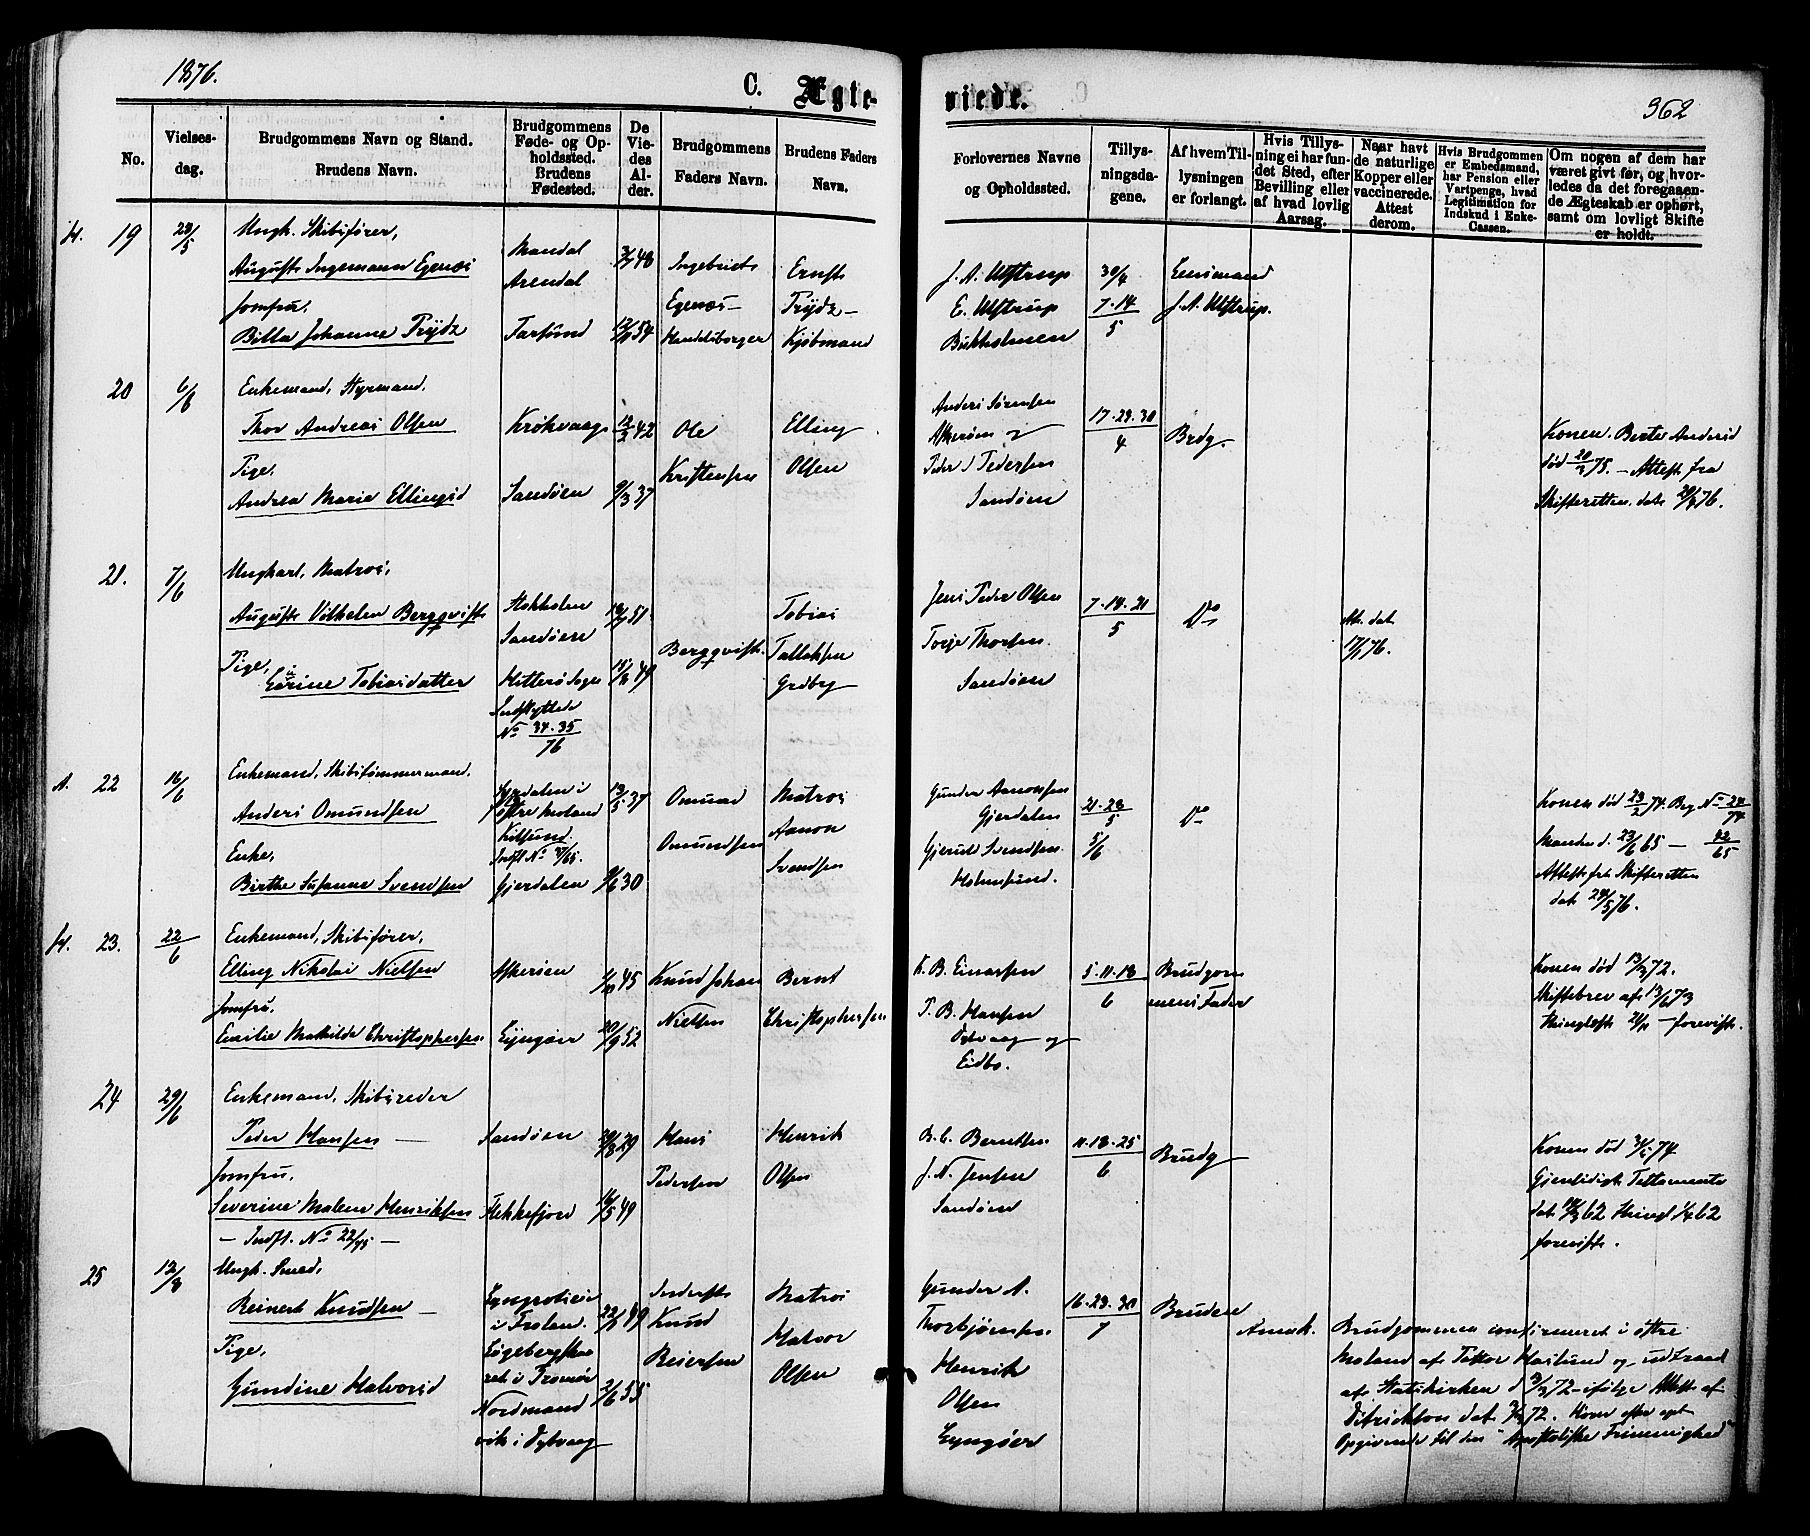 1876.
C. Ægte-
viede.
362
No.
Vielses-
dag.
Brudgommens Navn og Stand.
Brudens Navn.
Brudgommens
Føde- og Op-
holdssted.
Brudens
Fødested.
De
Vie-
des
Al-
der.
Brudgommens
Faders Navn.
Brudens Faders
Navn.
Forlovernes Navne
og Opholdssted.
Tillys-
ningsda-
gene.
Af hvem Til-
lysningen
er forlangt.
Hvis Tillys-
ning ei har fun-
det Sted, efter
Bevilling eller
af hvad lovlig
Aarsag.
Naar havt
de naturlige
Kopper eller
vaccinerede.
Attest
derom.
Hvis Brudgommen
er Embedsmand,
har Pension eller
Vartpenge, hvad
Legitimation for
Indskud i Enke-
Cassen.
Om nogen af dem har
været givt før, og hvor-
ledes da det foregaaen-
de Ægteskab er ophørt,
samt om lovligt Skifte
er holdt.
19
28/5
Ungk. Skibsfører,
August Ingemann Egenæs
Jomfru,
Billa Johanne Trydz
Mandal
Arendal
Farsund
48
54
Ingebrigt
Egenæs -
Handelsborger
Ernst
Trydz -
Kjøbmand
J. A. Ulstrup
E. Ulstrup
30/4
7. 14
5
J. A. Ulstrup.
20
6/6
Enkemand, Styrmand,
Thor Andreas Olsen
Pige,
Andrea Marie Ellingsd
Krokvaag
Sandøen
42
9/3 37
Ole
Kristensen
Elling
Olsen
Anders Sørensen
Askerøen og
Peder Pedersen
Sandøen
17. 23. 30
4
Brdg.
Konen Berte Andersd
død 75. - Attest fra
Skifteretten dat. 76.
21.
7/6
Ungkarl, Matros,
August Vilhelm Bergqvist
Pige,
Karine Tobiasdatter
Stokholm
Sandøen
Hitterø Sogn
Indflyttede
No 34. 35
76
51
49
Bergqvist.
Tobias
Tallaksen
Jens Peder Olsen
Torje Thorsen
Sandøen
7. 14. 21
5
Do
Att. dat.
17/1 76.
22
16/6
Enkemand, Skibstømmermand,
Anders Omundsen
Enke,
Birthe Susanne Svendsen
Østre Moland
Kilsund.
Gjerdalen
13/5 37
30
Omund
Omundsen
Matros
Aanon
Svendsen
Gunder Aanonsen
Gjerdalen
Gjerul Svendsen
Holmesund.
21. 28
5
5/6
Do
Konen død 74. Beg. No
Manden d. 23/6 65 - 42/65
Attest fra Skifteretten
dat. 5/76.
23.
22/6
Enkemand, Skibsfører,
Elling Nikolai Nielsen
Jomfru,
Emilie Mathilde Christophersen
Askerøen
Lyngøer
45
20/9 52
Knud Johan
Nielsen
Bernt
Christophersen
K. B. Einersen
T. B. Hansen
Dybvaag og
Eidbo.
5. 11. 18
6
Brudgom
mens Fader
Konen død 72.
Skiftebrev af 73
Thinglæst - forevist.
24
29/6
Enkemand, Skibsreder
Peder Hansen -
Jomfru,
Severine Malene Henriksen
- Indfl. No 22/75 -
Sandøen
Flekkefjord
29
16/5 49
Hans
Pedersen
Henrik
Olsen
B. C. Berntsen
J. N. Jensen
Sandøen
11. 18. 25
6
Brudg
Konen død 74
Gjensidigt Testamente
dat. 62 Thingl. 62
forevist.
25
12/8
Ungk. Smed,
Reinert Knudsen -
Pige,
Gundine Halvorsd
i Froland.
i Tromø
Nordmand
vik i Dybvaag
49
2/6 55
Inderst
Knud
Reiersen
Matros
Halvor
Olsen
Gunder A.
Thorbjørnsen
Henrik
Olsen
Lyngøer
16. 23. 30
7
Bruden
Anmk. Brudgommen confirmeret i Østre
Moland af Pastor Haslund og udtraad
af Statskirken d. 72 - ifølge Attest af
Ditrichson dat. 72. Hører efter eget
Opgivende til den "Apostoliske Frimenighed"